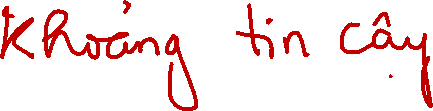 Khoảng tin cậy